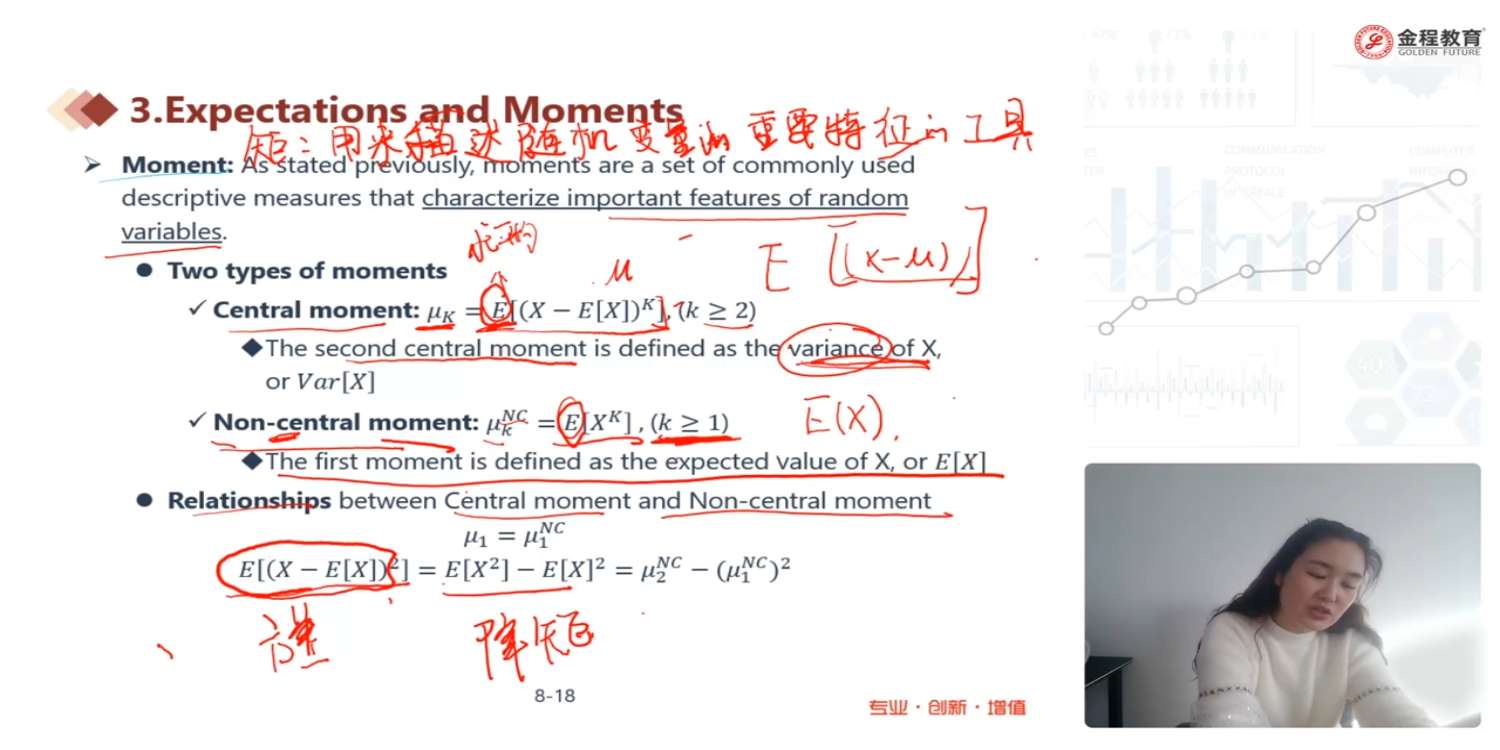 金程教育
GOLDEN FUTURE
3.Expectations and Moments
矩：用来描述随机变量的重要特征的工具
➢ Moment: As stated previously, moments are a set of commonly used
descriptive measures that characterize important features of random
variables.
E [(x-μ)]
● Two types of moments
μ
✓ Central moment: μ_K = E[(X − E[X])^K], (k ≥ 2)
◆The second central moment is defined as the variance of X,
or Var[X]
✓ Non-central moment: μ_k^NC = E[X^K], (k ≥ 1)
E(X).
◆The first moment is defined as the expected value of X, or E[X]
● Relationships between Central moment and Non-central moment
μ_1 = μ_1^NC
E[(X − E[X])^2] = E[X^2] − E[X]^2 = μ_2^NC − (μ_1^NC)^2
方差
降矩
8-18
专业·创新·增值